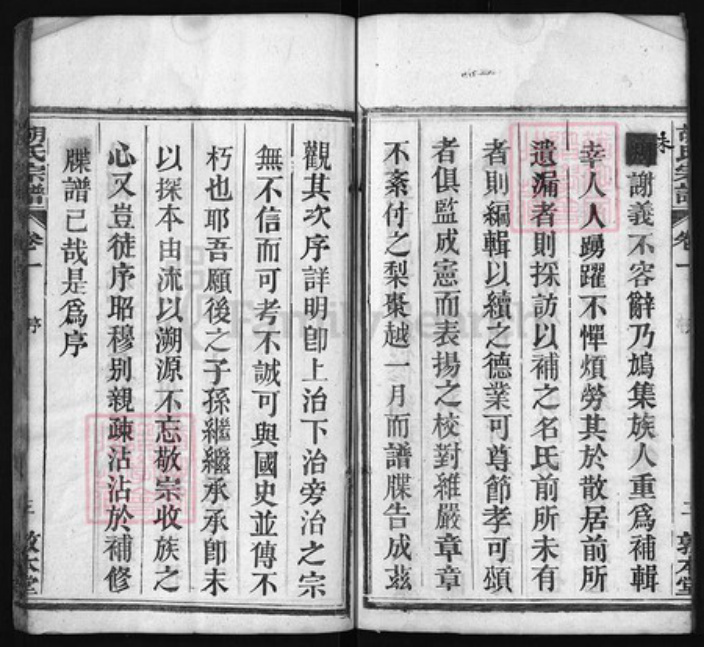 胡氏宗譜
卷一
序
敦本堂
謝義不容辭乃鳩集族人重為補輯
幸人人踴躍不憚煩勞其於散居前所
遺漏者則探訪以補之名氏前所未有
者則編輯以續之德業可尊節孝可頌
者俱監成憲而表揚之校對維嚴章章
不紊付之梨棗越一月而譜牒告成茲
觀其次序詳明卽上治下治旁治之宗
無不信而可考不誠可與國史並傳不
朽也耶吾願後之子孫繼繼承承卽末
以探本由流以溯源不忘敬崇收族之
心又豈徒序昭穆別親疎沾沾於補修
牒譜已哉是為序
胡氏宗譜
卷一
序
三
敦本堂
FamilySearch